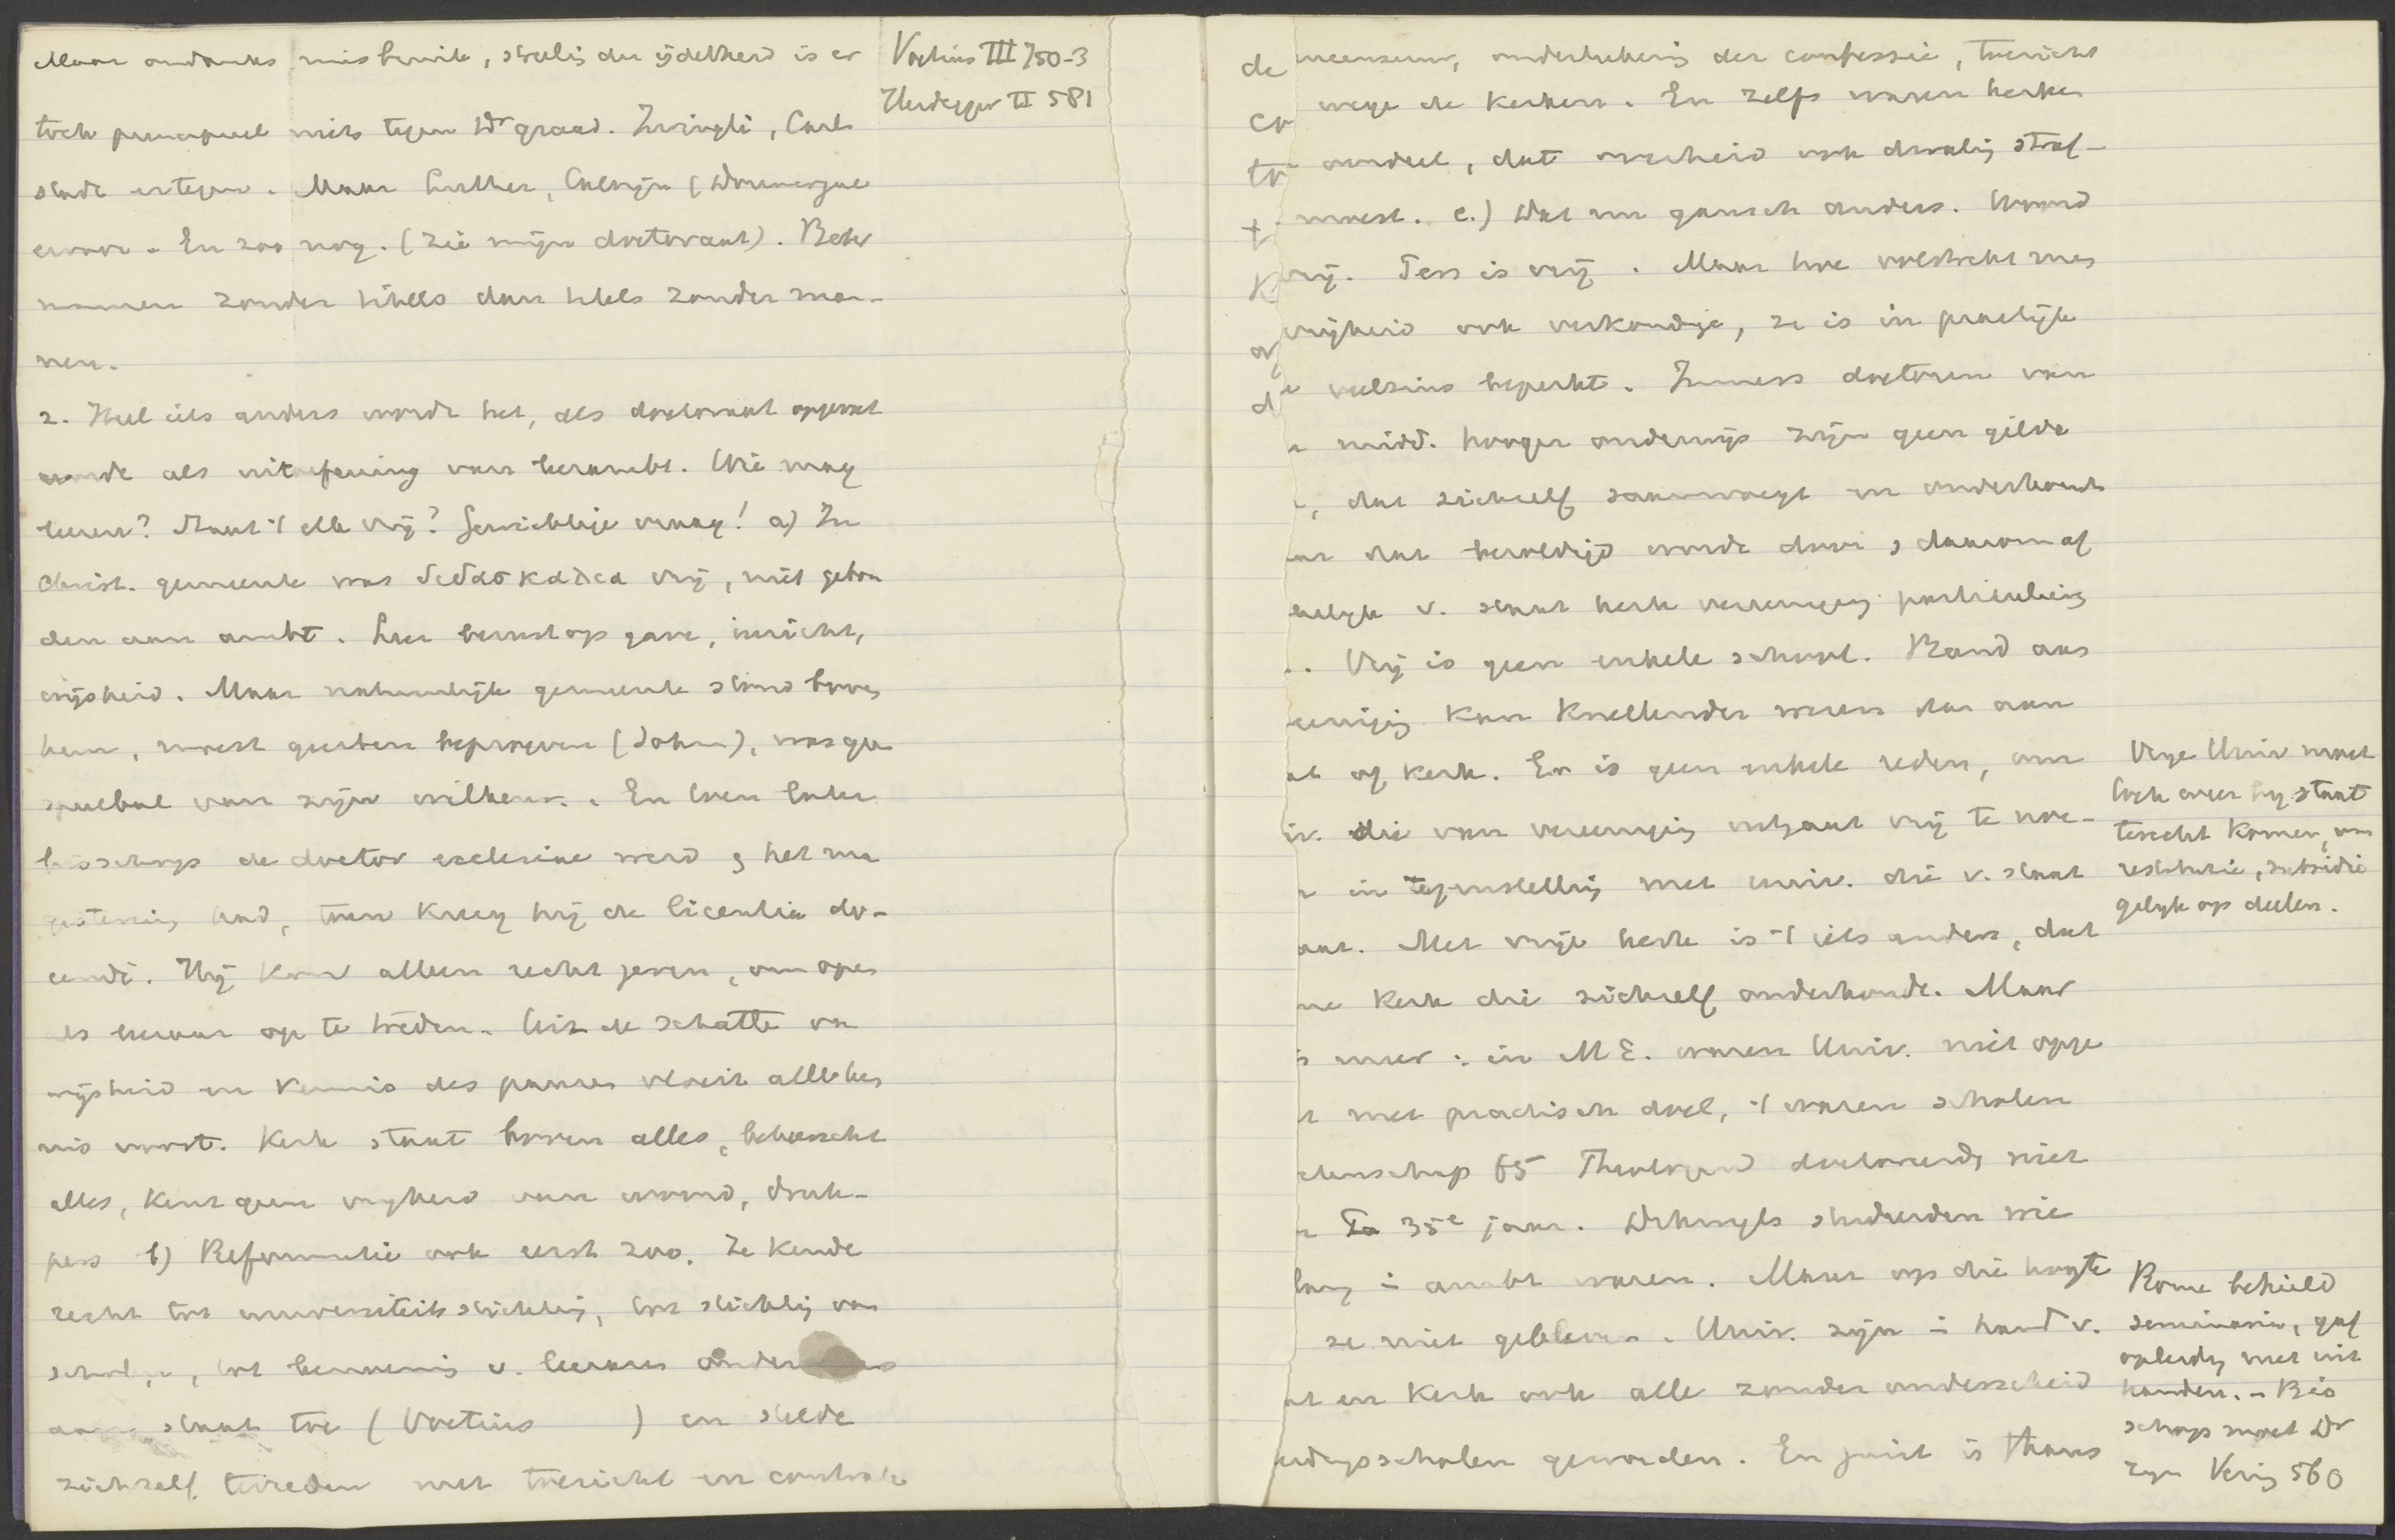 Maar ondanks misbruik, streelig der ijdelheid is er
toch principieel niets tegen Dr graad. Zwingli, Carl-
stadt ertegen. Maar Luther, Calvijn (Doumergue
ervoor. En zoo nog. (Zie mijn doctoraat). Beter
mannen zonder titels dan titels zonder man-
nen.
2. Heel iets anders wordt het, als doctoraat opgevat
wordt als uitoefening van leerambt. Wie mag
leeren? Staat 't elk vrij? Gewichtige vraag! a) In
Christ. gemeente was διδασκαλια vrij, niet gebon
den aan ambt. Leer berust op gave, inzicht,
wijsheid. Maar natuurlijk gemeente stond boven
hem, moest geesten beproeven (Joh), was geen
speelbal van zijn willekeur. En toen later
bisschop de doctor ecclesiae werd en het ma
gisterium had, toen kreeg hij de licentia do-
cendi. Hij kon alleen recht geven, om open
als leeraar op te treden. Uit de schatte van
wijsheid en kennis des pausen vloeit alle ken
nis voort. Kerk staat boven alles, beheerscht
alles, kent geen vrijheid van woord, druk-
pers b) Reformatie ook eerst zoo. Ze kende
recht tot universiteits stichting, tot stichtig van
scholen, tot benoeming v. leeraars
aan staat toe (Voetius ) en stelde
zichzelf tevreden met toezicht en controle
Voetius III 750-3
Heidegger II 581
de
co
to
t
K
a
d
censuur, onderteekenig der confessie, toezicht
wege de kerken. En zelfs waren kerken
oordeel, dat overheid ook dwalig straf-
moest. c.) Dat nu gansch anders. Woord
vrij. Pers is vrij. Maar hoe volstrekt men
vrijheid ook verkondige, ze is in practijk
veelszins beperkt. Immers doctoren van
midd. hooger onderwijs zijn geen gilde
, dat zichzelf saamvoegt en onderhoudt
dat bezoldigd wordt door en daarom af
hankelijk v. staat kerk vereeniging particulieren
. Vrij is geen enkele school. Band aan
vereenigig kan knellender wezen dan aan
staat of kerk. Er is geen enkele reden, om
univ. die van vereenigig uitgaat vrij te noe-
in tegenstellig met univ. die v. staat
gaat. Met vrije kerk is 't iets anders, dat
kerk die zichzelf onderhoudt. Maar
meer: in M.E. waren Univ. niet opge
met practisch doel, 't waren scholen
wetenschap 65 Theologen doctoreerden niet
35e jaar. Dikwijls studeerden wie
lang in ambt waren. Maar op die hoogte
ze niet gebleven. Univ. zijn in hand v.
staat en kerk ook alle zonder onderscheid
opleidingsscholen geworden. En juist is thans
Vrije Univ moet
toch weer bij staat
terecht komen, om
restitutie, subsidie
gelijk op deelen.
Rome behield
seminaria, gaf
opleidg niet uit
handen. - Bis
schop moet Dr
zijn Verig 560